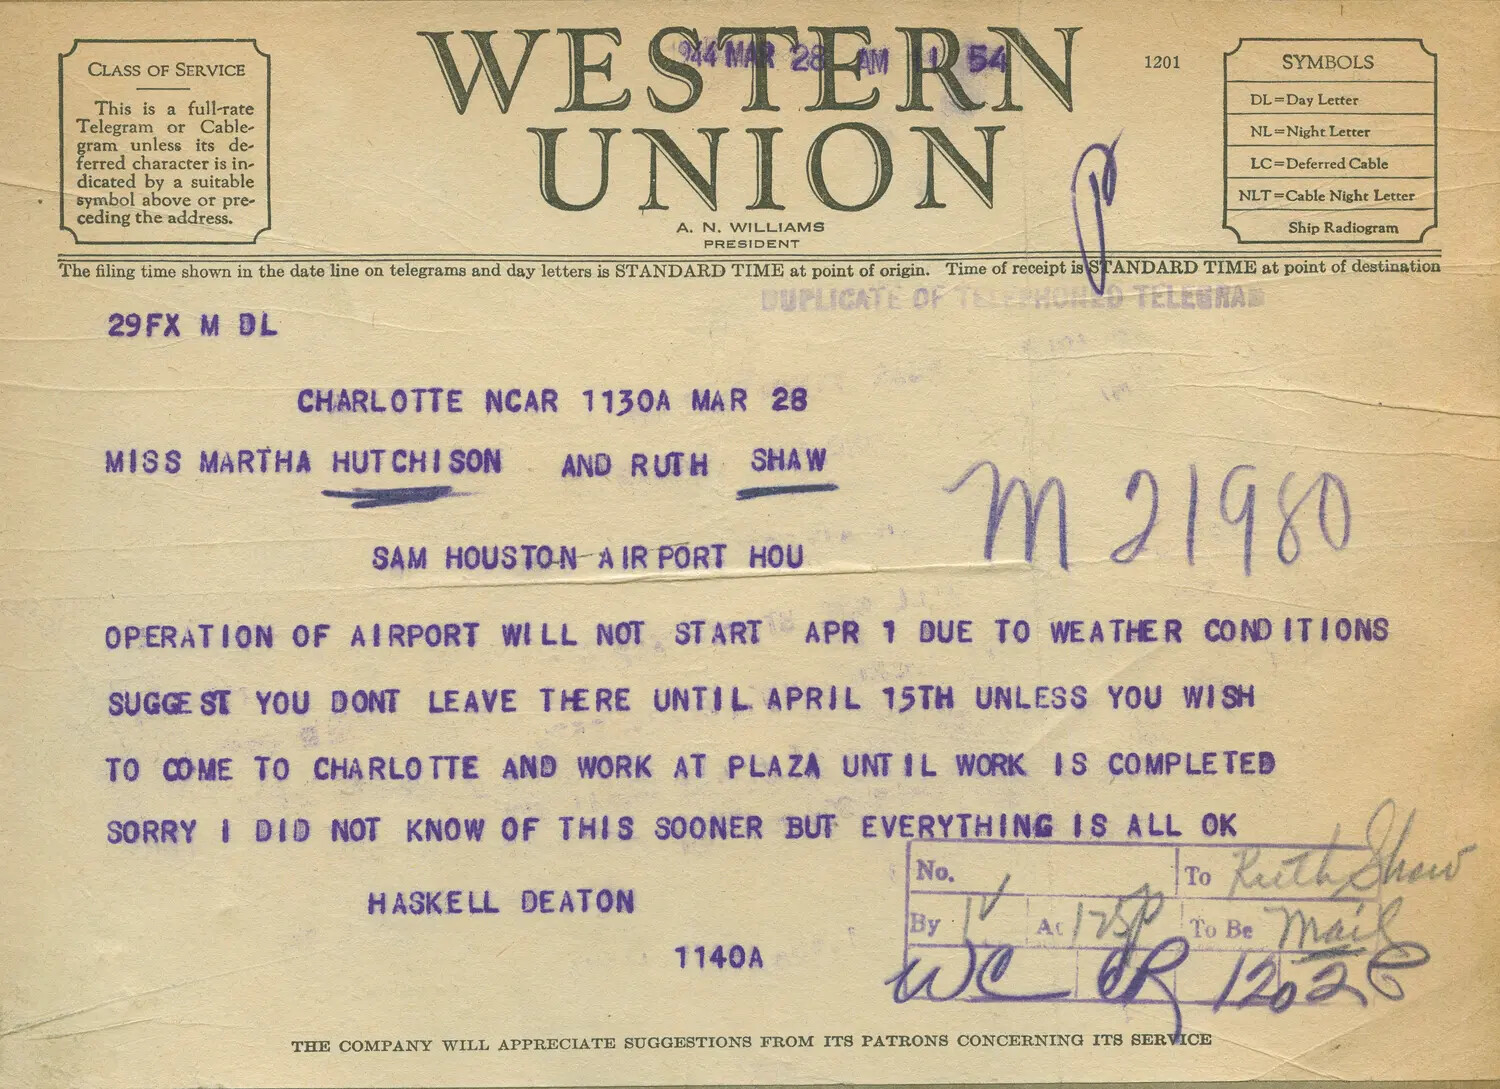 CLASS OF SERVICE
This is a full-rate
Telegram or Cable-
gram unless its de-
ferred character is in-
dicated by a suitable
symbol above or pre-
ceding the address.
WESTERN
UNION
1944 MAR 28 AM 11 54
A. N. WILLIAMS
PRESIDENT
1201
SYMBOLS
DL=Day Letter
NL=Night Letter
LC=Deferred Cable
NLT=Cable Night Letter
Ship Radiogram
The filing time shown in the date line on telegrams and day letters is STANDARD TIME at point of origin. Time of receipt is STANDARD TIME at point of destination
DUPLICATE OF TELEPHONED TELEGRAM
29FX M DL
CHARLOTTE NCAR 1130A MAR 28
MISS MARTHA HUTCHISON AND RUTH SHAW
M 21980
SAM HOUSTON AIRPORT HOU
OPERATION OF AIRPORT WILL NOT START APR 1 DUE TO WEATHER CONDITIONS
SUGGEST YOU DONT LEAVE THERE UNTIL APRIL 15TH UNLESS YOU WISH
TO COME TO CHARLOTTE AND WORK AT PLAZA UNTIL WORK IS COMPLETED
SORRY I DID NOT KNOW OF THIS SOONER BUT EVERYTHING IS ALL OK
HASKELL DEATON
1140A
No. To Ruth Shaw
By At 125p To Be Mail
WC 1202
THE COMPANY WILL APPRECIATE SUGGESTIONS FROM ITS PATRONS CONCERNING ITS SERVICE